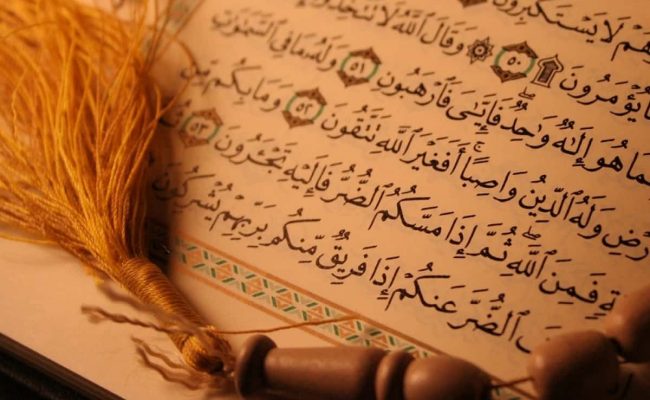 لَا يَسْتَكْبِرُونَ
مَا يُؤْمَرُونَ ۩ ٥٠ ۞ وَقَالَ ٱللَّهُ لَا تَتَّخِذُوٓا۟
هُوَ إِلَٰهٌ وَٰحِدٌ فَإِيَّٰىَ فَٱرْهَبُونِ ٥١ وَلَهُۥ مَا فِى ٱلسَّمَٰوَٰتِ
وَلَهُ ٱلدِّينُ وَاصِبًا ۚ أَفَغَيْرَ ٱللَّهِ تَتَّقُونَ ٥٢ وَمَا بِكُم مِّن
فَمِنَ ٱللَّهِ ۖ ثُمَّ إِذَا مَسَّكُمُ ٱلضُّرُّ فَإِلَيْهِ تَجْـَٔرُونَ ٥٣
ٱلضُّرَّ عَنكُمْ إِذَا فَرِيقٌ مِّنكُم بِرَبِّهِمْ يُشْرِكُونَ